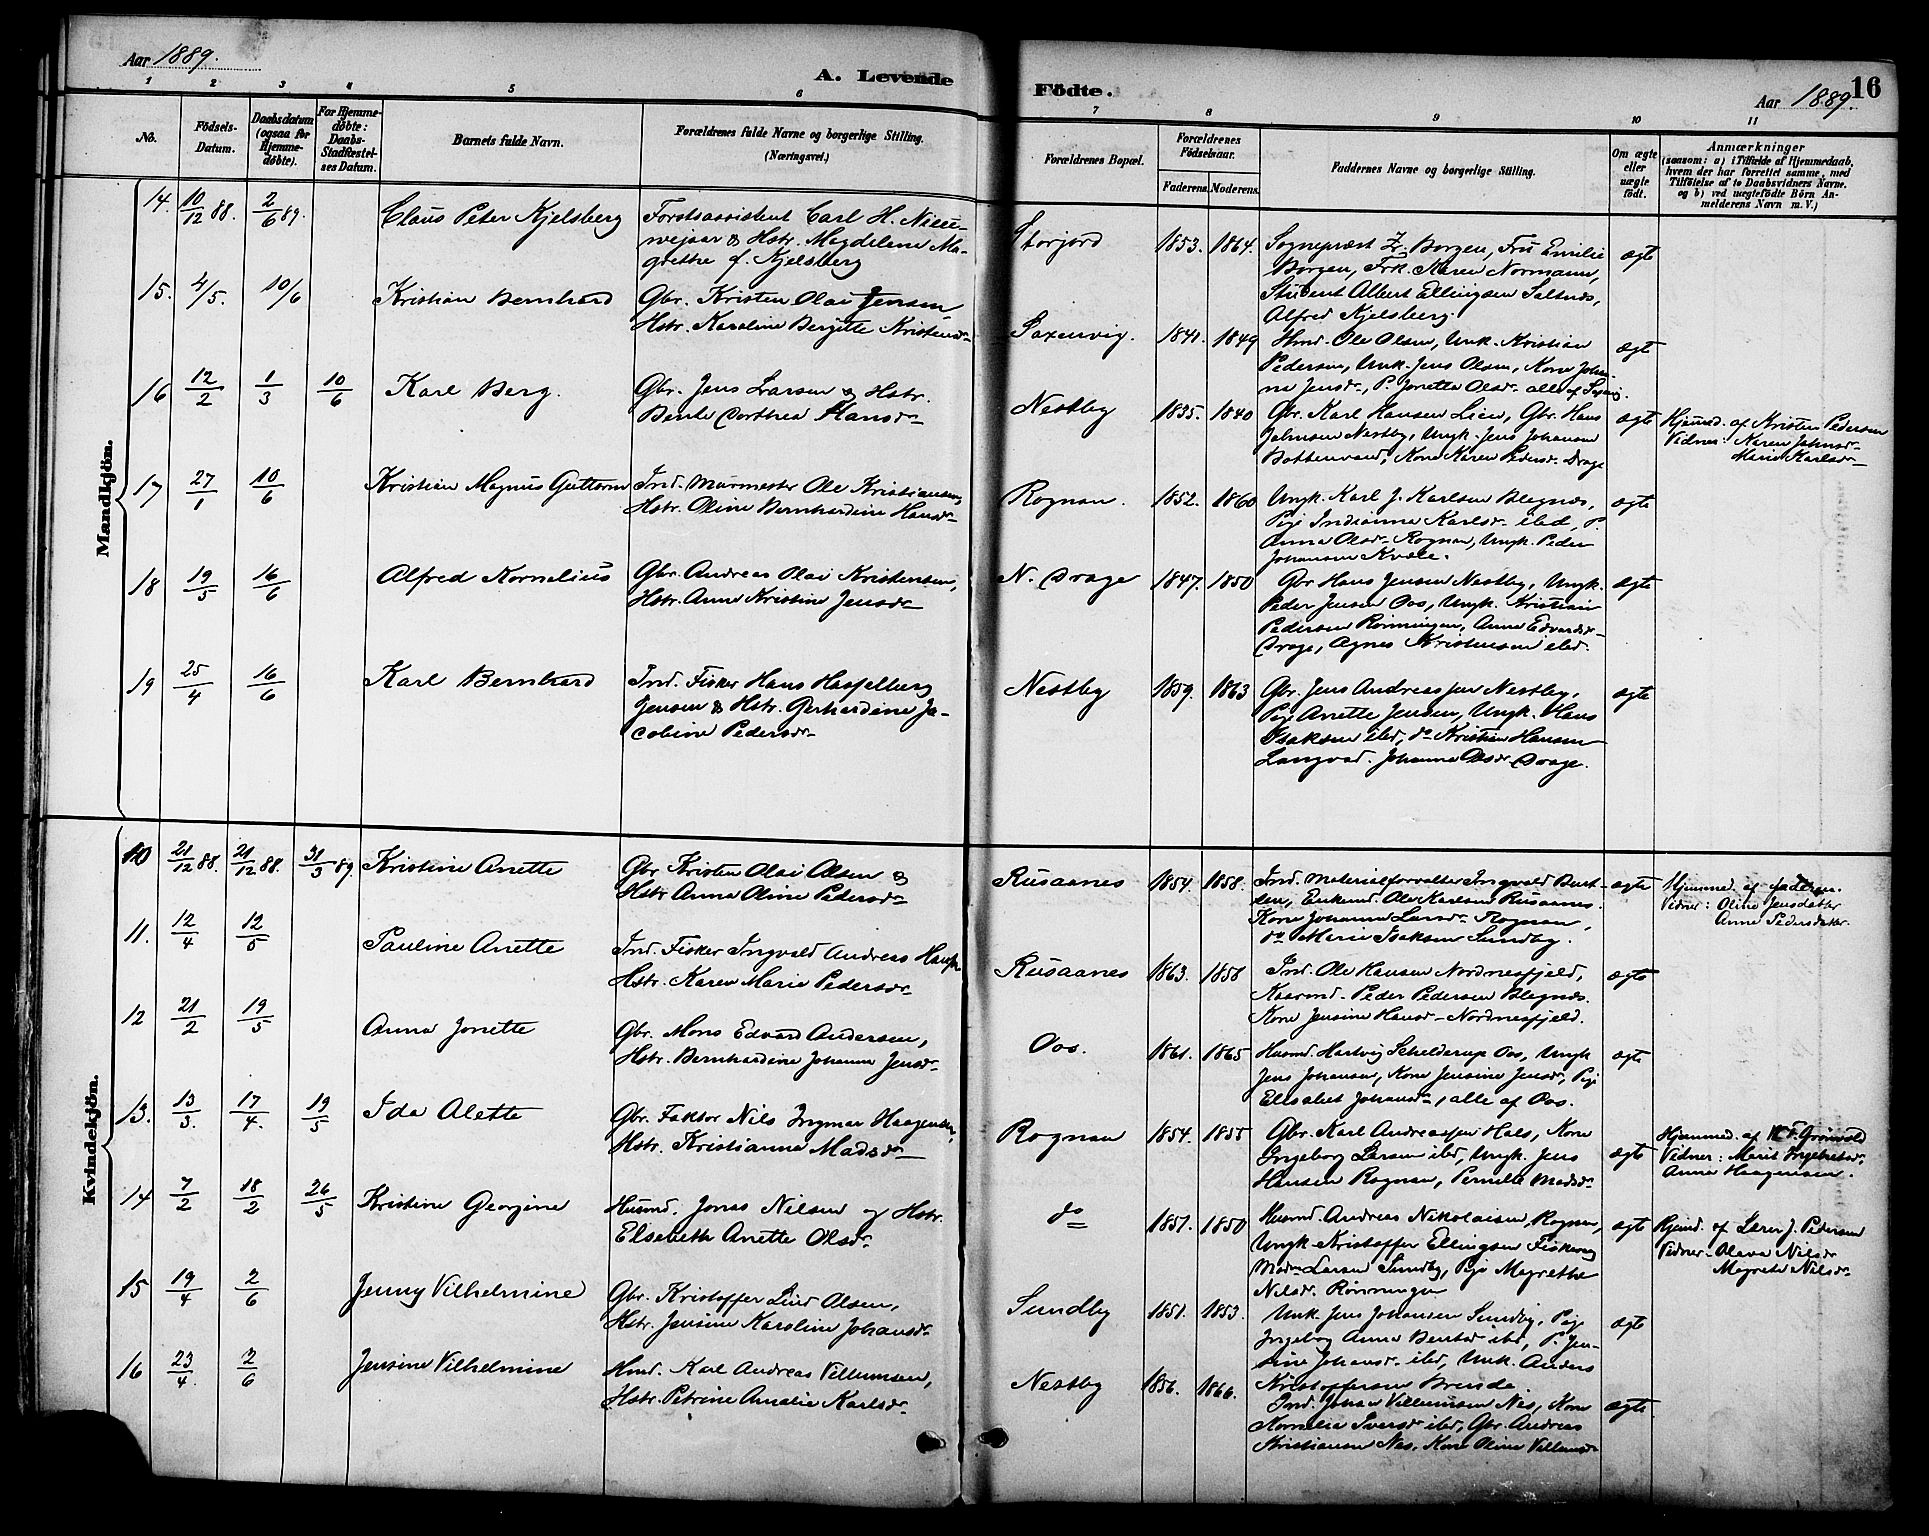 Aar 1889.
A. Levende
Födte.
Aar 1889.
16
1 2 3 4 5 6 7 8 9 10 11
No.
Födsels-Datum.
Daabsdatum (ogsaa for Hjemmedöbte).
For Hjemmedöbte: Daabs-Stadfæstelses Datum.
Barnets fulde Navn.
Forældrenes fulde Navne og borgerlige Stilling. (Næringsvei.)
Forældrenes Bopæl.
Forældrenes Födselsaar.
Faderens. Moderens.
Faddernes Navne og borgerlige Stilling.
Om ægte eller uægte födt.
Anmærkninger
(saasom: a) i Tilfælde af Hjemmedaab, hvem der har forrettet samme, med Tilföielse af to Daabsvidners Navne. og b) ved uægtefödte Börn Anmelderens Navn m. V.)
Mandkjön.
14. 10/12 88. 2/6 89. Claus Peter Kjelsberg
Forstassistent Carl H.
& Hstr. Magdelene Ma-
grethe f. Kjelsberg
Storjord 1853. 1864.
Sognepræst Borgen, Fru Emilie
Borgen, Frk. Karen Normann,
Student Albert Ellingsen Saltnes,
Alfred Kjelsberg.
ægte
15. 4/5. 10/6 Kristian Bernhard
Gbr. Kristen Olai Jensen
Hstr. Karoline Bergitte Kristensdr
Saxenvig. 1841. 1849
Hmd. Ole Olsen, Unk. Kristian
Pedersen, Unk. Jens Olsen, Kone Johan-
ne Jensdr, P. Jonette Olsdr alle af
ægte
16 12/2 1/3 10/6 Karl Berg.
Gbr. Jens Larsen & Hstr.
Bente Dorthea Hansdr
Nestby 1835. 1840
Gbr. Karl Hansen Lien, Gbr. Hans
Johnsen Nestby, Ungk. Jens Johansen
Bottenvand, Kone Karen Pedersdr Drage
ægte
Hjemmed. af Kristen Pedersen
Vidner: Karen Johnsdr
Marie Karlsdr
17 27/1 10/6 Kristian Magnus Guttorm
Ind. Murmester Ole Kristiansen,
Hstr. Oline Bernhardine Hansdr
Rognan. 1852. 1860
Ungk. Karl J. Karlsen Blegnes,
Pige Indianna Karlsdr ibd, P.
Anna Olsdr Rognan, Ungk. Peder
Johansen Kvæle.
ægte
18 19/5 16/6 Alfred Kornelius
Gbr. Andreas Olai Kristensen,
Hstr. Anne Kristine Jensdr
N. Drage 1847. 1850
Gbr Hans Jensen Nestby, Ungk.
Peder Jensen Oos, Ungk. Kristian
Pedersen Rönningen, Anna Edvardsdr
Drage, Agnes Kristensen ibd.
ægte
19 25/4 16/6 Karl Bernhard
Ind. Fisker Hans Hasselberg
Jensen & Hstr. Gerhardine Ja-
cobine Pedersdr
Nestby 1859. 1863
Gbr. Jens Andreassen Nestby,
Pige Anette Jensen, Ungk. Hans
Isaksen ibd, do Kristian Hansen
Langvad. Johanna Olsdr Drage.
ægte
Kvindekjön.
10 21/12 88. 21/12 88. 31/3 89 Kristine Anette
Gbr Kristen Olai Olsen &
Hstr Anna Oline Pedersdr
Rusaanes 1854. 1858.
Ind. Materialforvalter Ingvald
Enkemd. Ole Karlsen Rusaanes.
Kone Johanna Larsdr Rognan,
do Marie Isaksen Sundby.
ægte
Hjemmed. af Faderen.
Vidner: Oline Jensdatter
Anne Pedersdatter.
11. 12/4 12/5 Pauline Anette
Ind. Fisker Ingvald Andreas Hansen
Hstr. Karen Marie Pedersdr
Rusaanes 1863. 1858
Ind. Ole Hansen Nordnesfjeld,
Kaarmd. Peder Pedersen Blegnes.
Kone Jensine Hansdr Nordnesfjeld.
ægte
12 21/2 19/5 Anna Jonette
Gbr. Mons Edvard Andersen,
Hstr. Bernhardine Johanna Jensdr
Oos. 1861. 1865
Husmd. Hartvig Schelderup Oos, Ungk
Jens Johansen, Kone Jensine Jensdr, Pige
Elisabet Johansdr, alle af Oos.
ægte
13. 13/3. 17/4. 19/5 Ida Alette
Gbr. Faktor Nils Ingmar Haagensen,
Hstr. Kristianna Madsdr
Rognan 1854. 1855
Gbr. Karl Andreassen Hals, Kone
Ingeborg Larsen ibd, Ungk. Jens
Hansen Rognan, Pernille Madsdr
ægte
Hjemmed. af Grönvold
Vidner: Marit Ingebretsdr,
Anna Haagensen.
14 7/2 18/2 26/5 Kristine Georgine
Husmd. Jonas Nilsen og Hstr.
Elsebeth Anette Olsdr
do 1851. 1850
Husmd. Andreas Nikolaisen Rognan,
Ungk Kristoffer Ellingsen
Larsen Sundby, Pige Magrethe
Nilsdr. Rönningen
ægte
Hjemd. af Lærer J. Pedersen
Vidner Olava Nilsdr
Magrete Nilsdr
15 19/4 2/6 Jenny Vilhelmine
Gbr. Kristoffer Lind Olsen,
Hstr. Jensine Karoline Johansdr
Sundby 1851. 1853.
Unk. Jens Johansen Sundby, Pige
Ingeborg Anna Bentsdr ibd, P. Jen-
sine Johansdr ibd, Unk. Anders
Kristoffersen Brende.
ægte
16 23/4. 2/6 Jensine Vilhelmine
Hmd. Karl Andreas Villumsen,
Hstr. Petrine Amalie Karlsdr
Nestby 1856. 1866.
Ind. Johan Villumsen Nes, Kone
Kornelia Iversdr ibd, Gbr. Andreas
Kristiansen Nes, Kone Oline Villumsdr
ægte